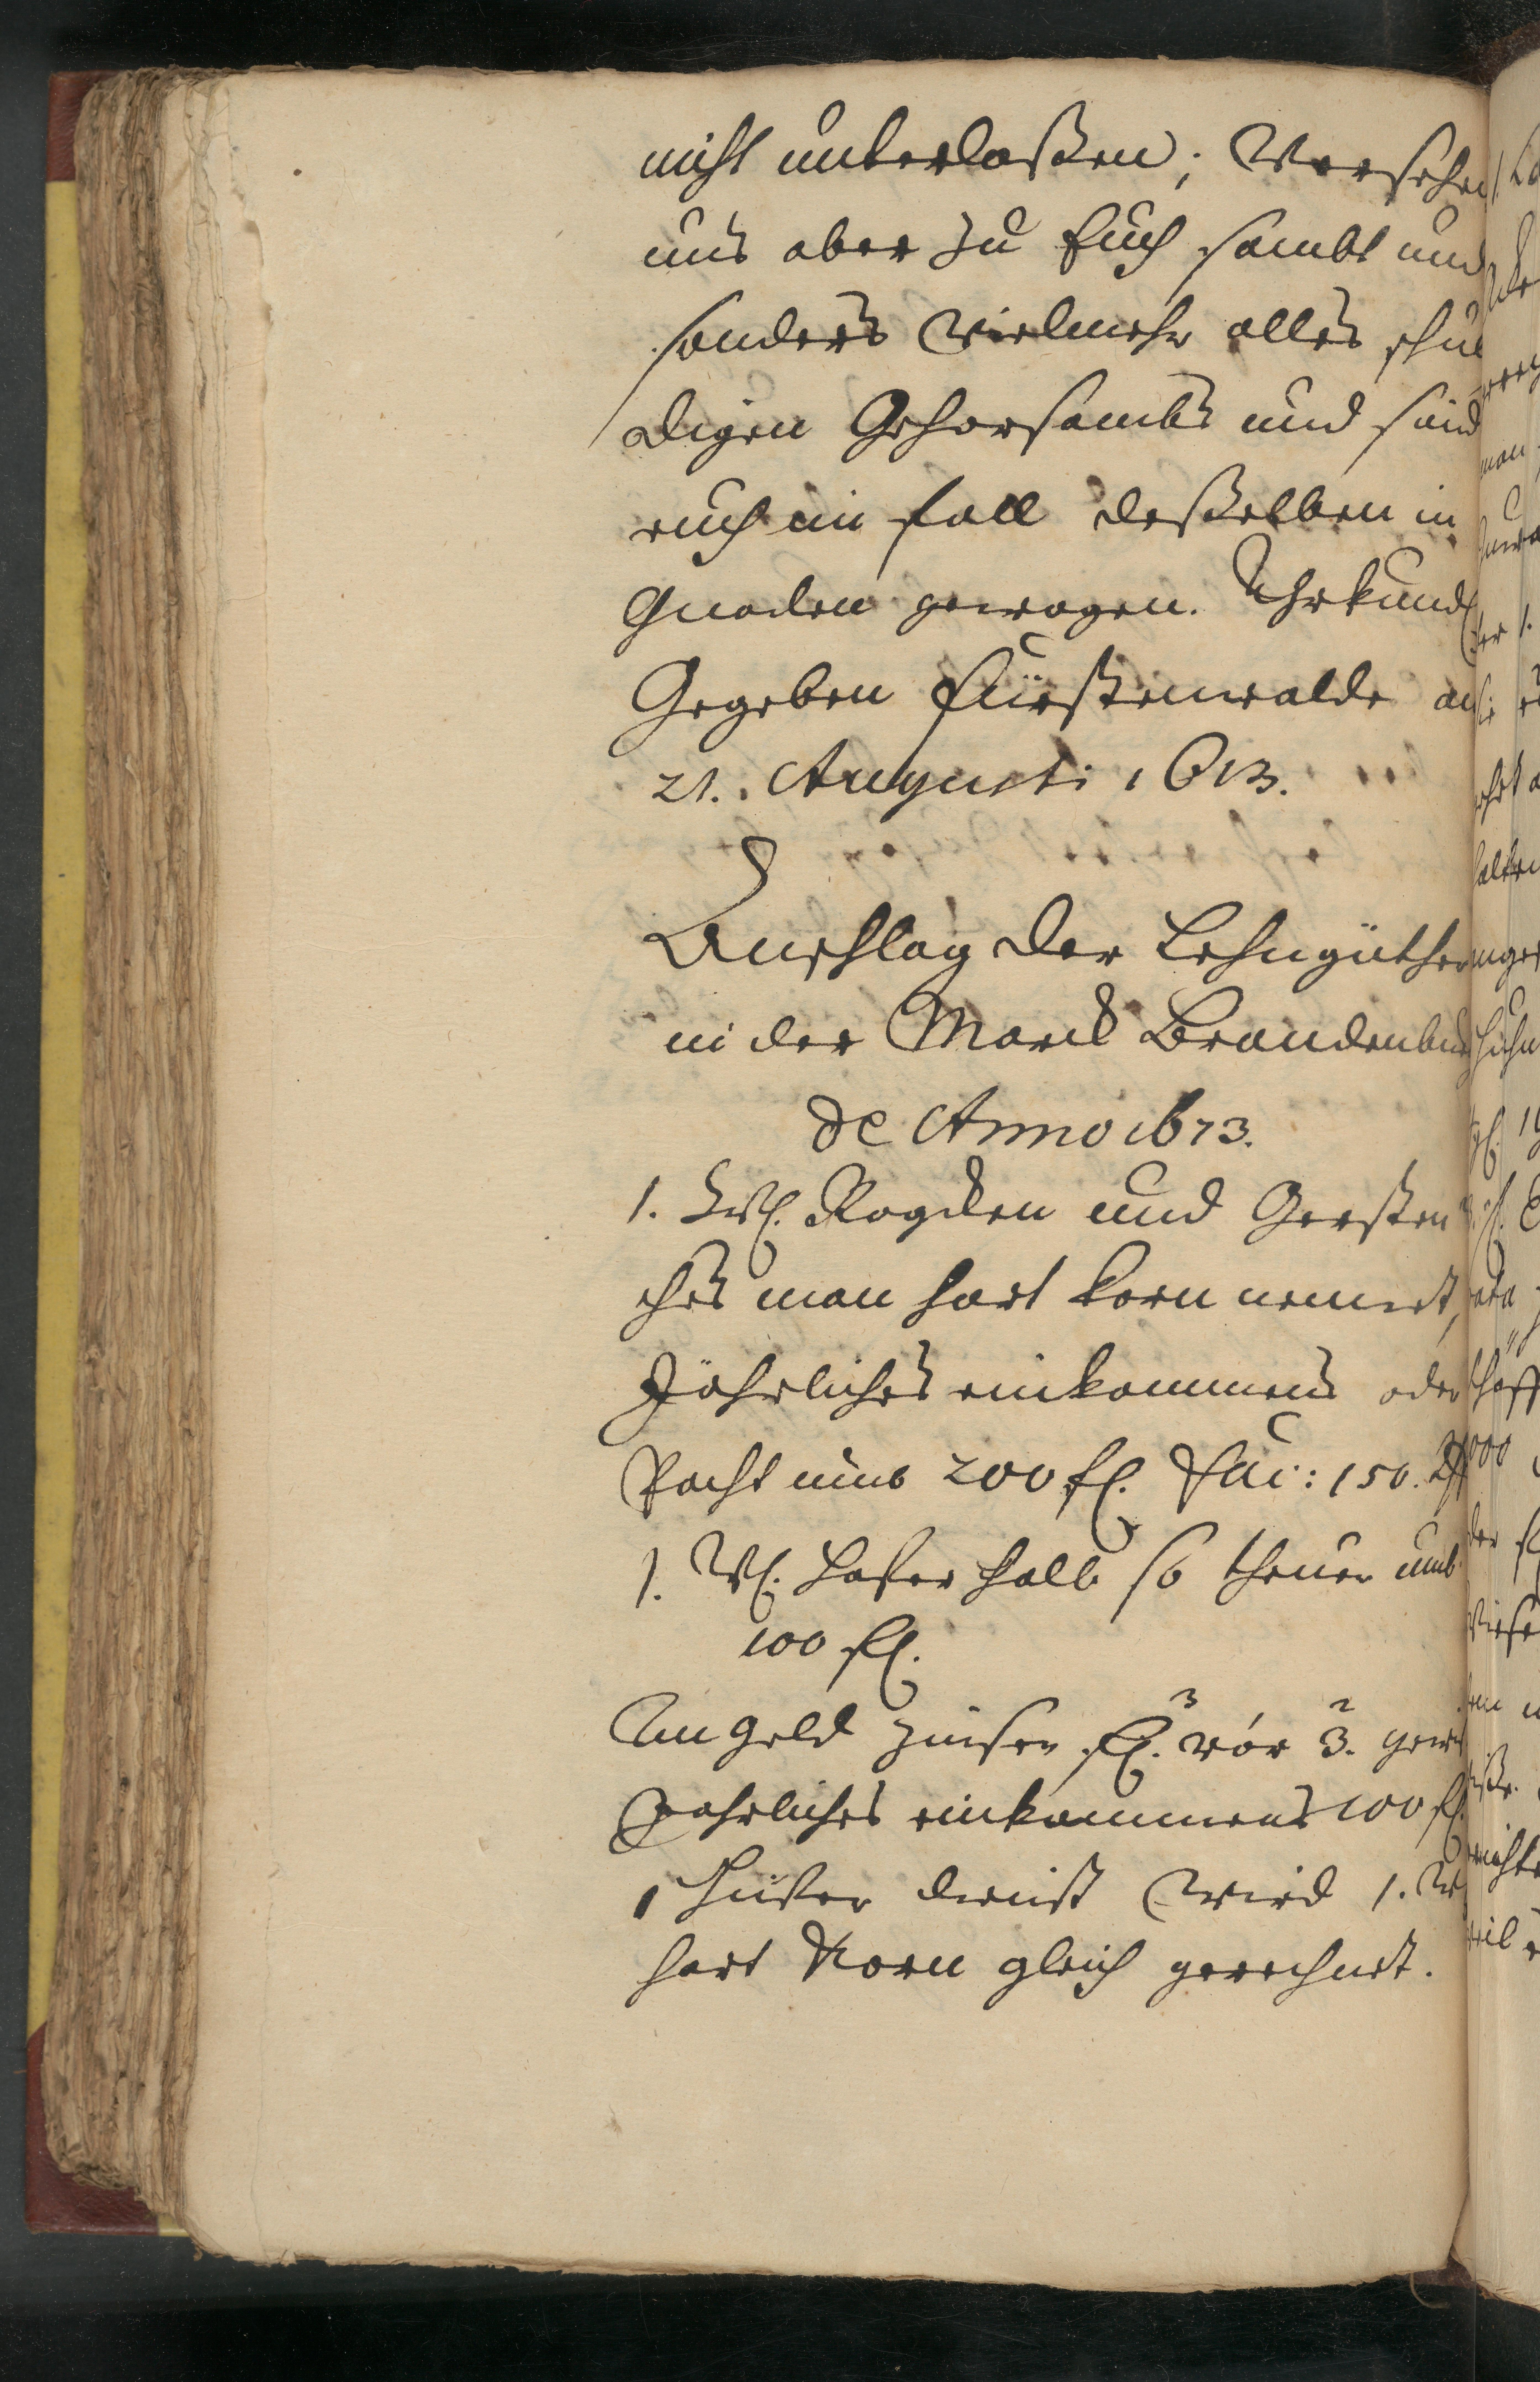 nicht unterlaßen; Versehen
uns aber zu Euch sambt und
sonders vielmehr alles schul
digen Gehorsambs und sind
euch im fall deßelben in
Gnaden gewogen. Uhrkundl.
Gegeben Fürstenwalde an
21. Augusti 1613.
Anschlag der Lehngüther
in der Marck Brandenburg
de Anno 1673.
1. Wl. Rogcken und Gersten
ches man hart korn nennet,
Jährliches einkommens oder
Pacht umb 200 fl. Fac: 150.
1. Wl. Hafer halb so theuer umb
100 fl.
An Geld Zinsen fl. 3 vor 3.
Jahrliches einkommens 100 fl.
1 Hüfner dienst wird 1. W
hart Korn gleich gerechnet.